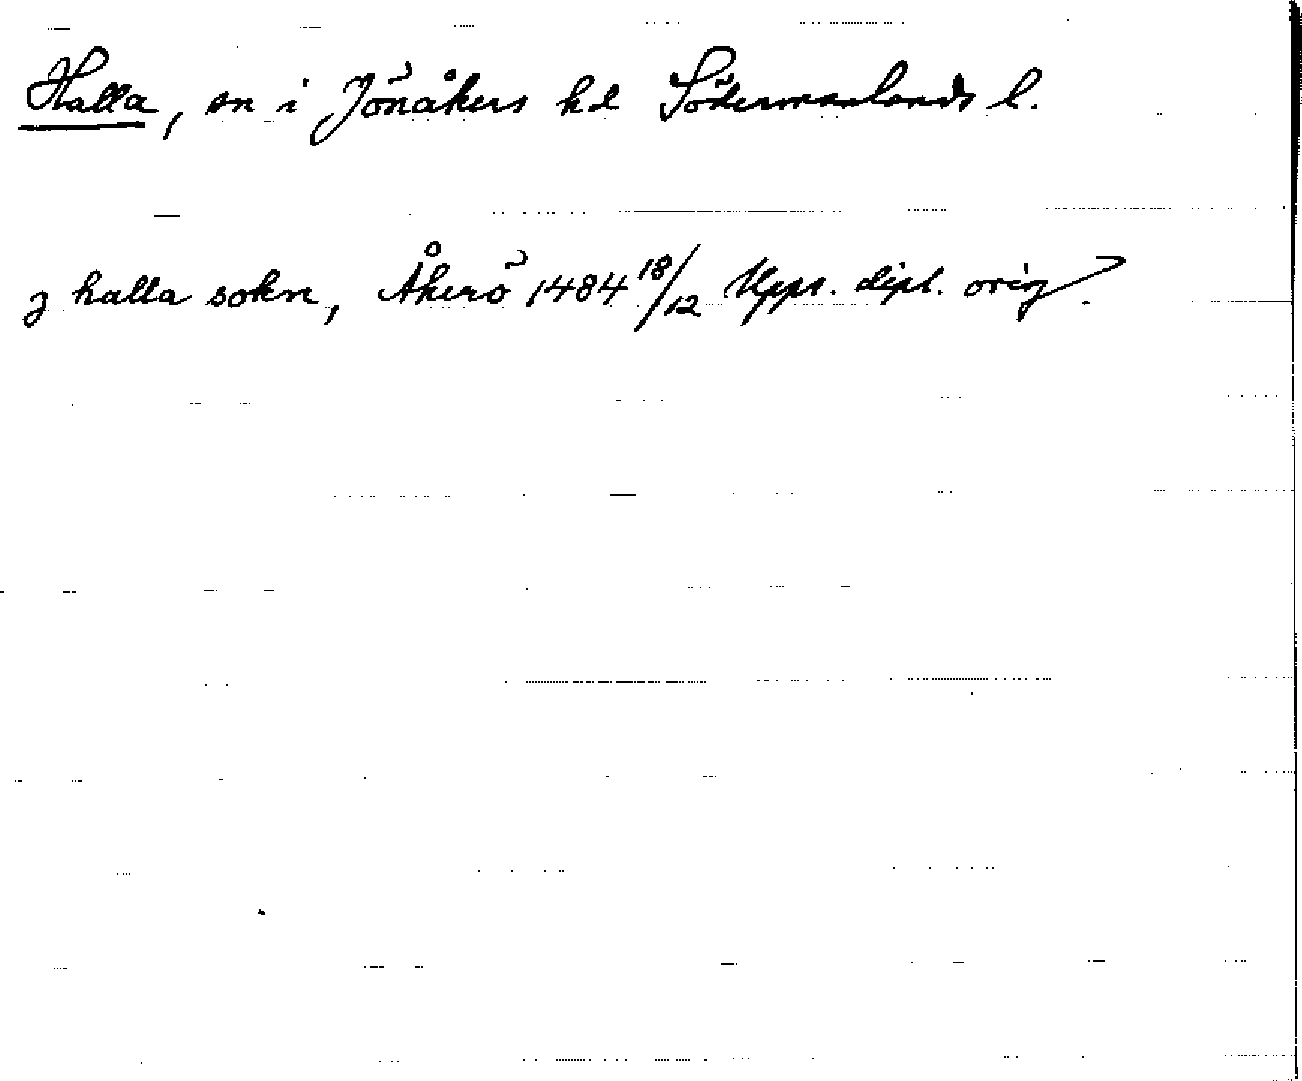 Halla, sn i Jönåkers hd Södermanlands l.
j halla sokn, Åkerö 1484 18/12 Upps. dipl. orig.